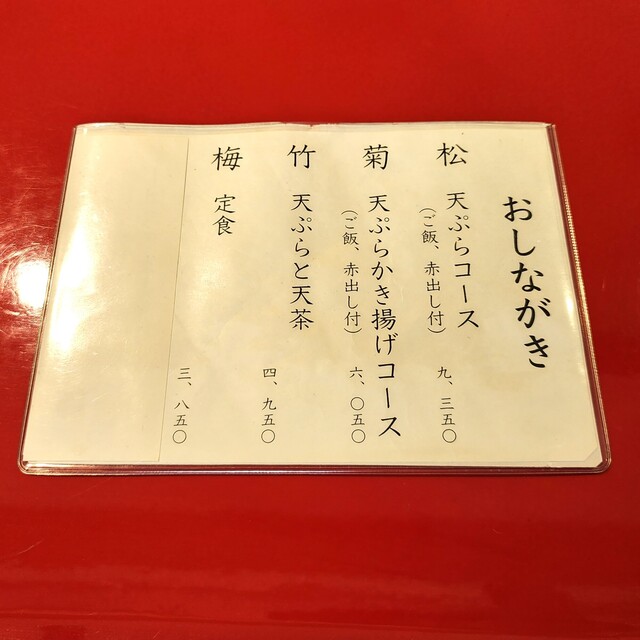 おしながき
松 天ぷらコース
(ご飯、赤出し付)
九、三五〇
菊 天ぷらかき揚げコース
(ご飯、赤出し付)
六、〇五〇
竹 天ぷらと天茶
四、九五〇
梅 定食
三、八五〇